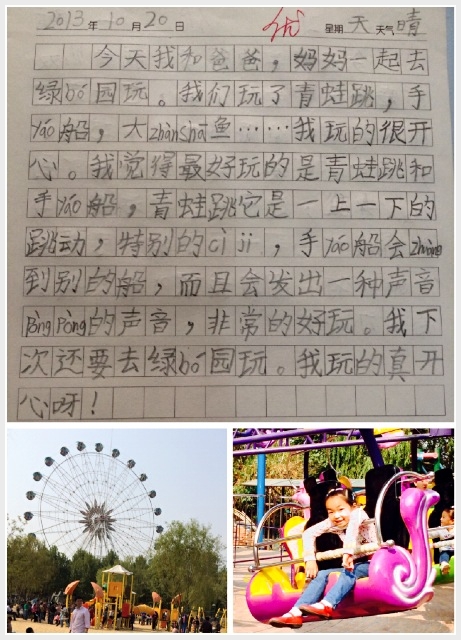 2013年10月20日 优 星期天 天气晴
今天我和爸爸，妈妈一起去
绿bó园玩。我们玩了青蛙跳，手
yáo船，大zhānshā鱼……我玩的很开
心。我觉得最好玩的是青蛙跳和
手yáo船，青蛙跳它是一上一下的
跳动，特别的cì jī，手yáo船会zhuàng
到别的船，而且会发出一种声音
pòng pòng的声音，非常的好玩。我下
次还要去绿bó园玩。我玩的真开
心呀！